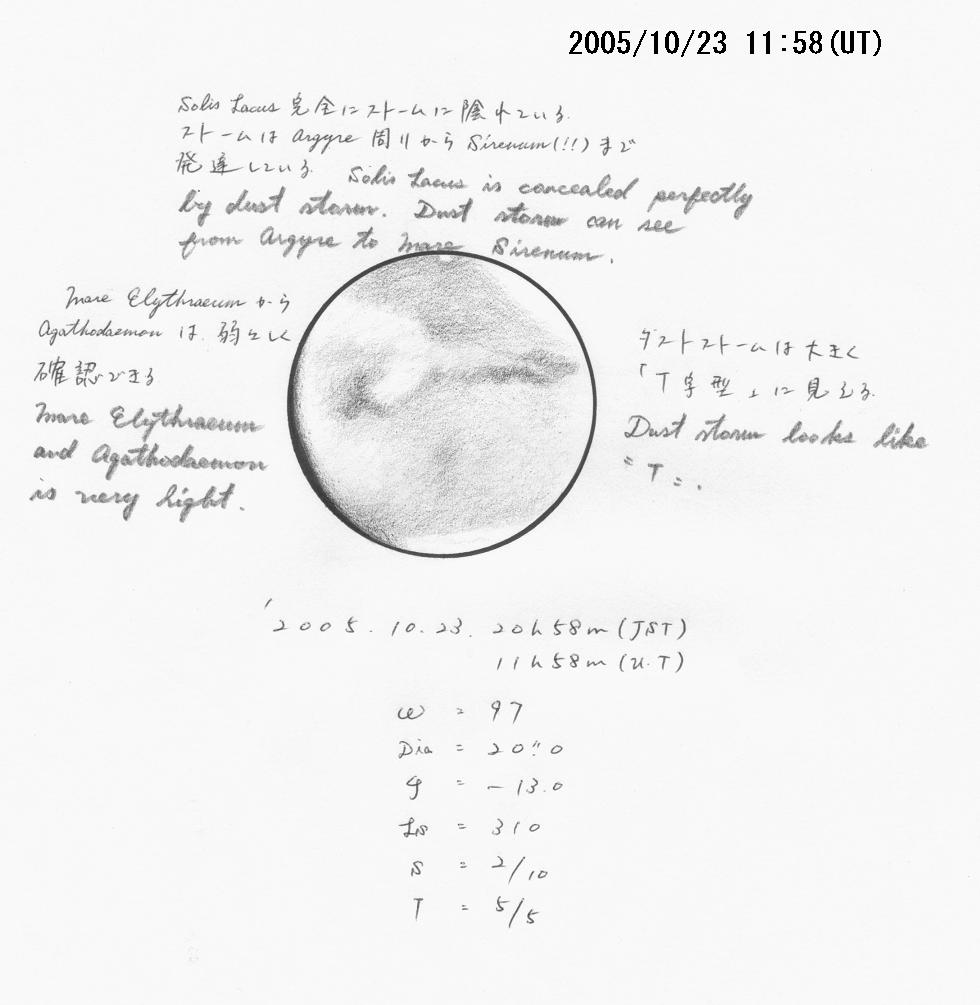 2005/10/23 11:58(UT)
Solis Lacus 完全にストームに隠れている.
ストームは Argyre 周りから Sirenum(!!)まで
発達している. Solis Lacus is concealed perfectly
by dust storm. Dust storm can see
from Argyre to Mare Sirenum.
Mare Elythraeum から
Agathodaemon は、弱々しく
確認できる
Mare Elythraeum
and Agathodaemon
is very light.
ダストストームは大きく
「T字型」に見える.
Dust storm looks like
"T".
'2005.10.23. 20h58m(JST)
11h58m(U.T)
ω = 97
Dia = 20".0
φ = -13.0
Ls = 310
S = 2/10
T = 5/5